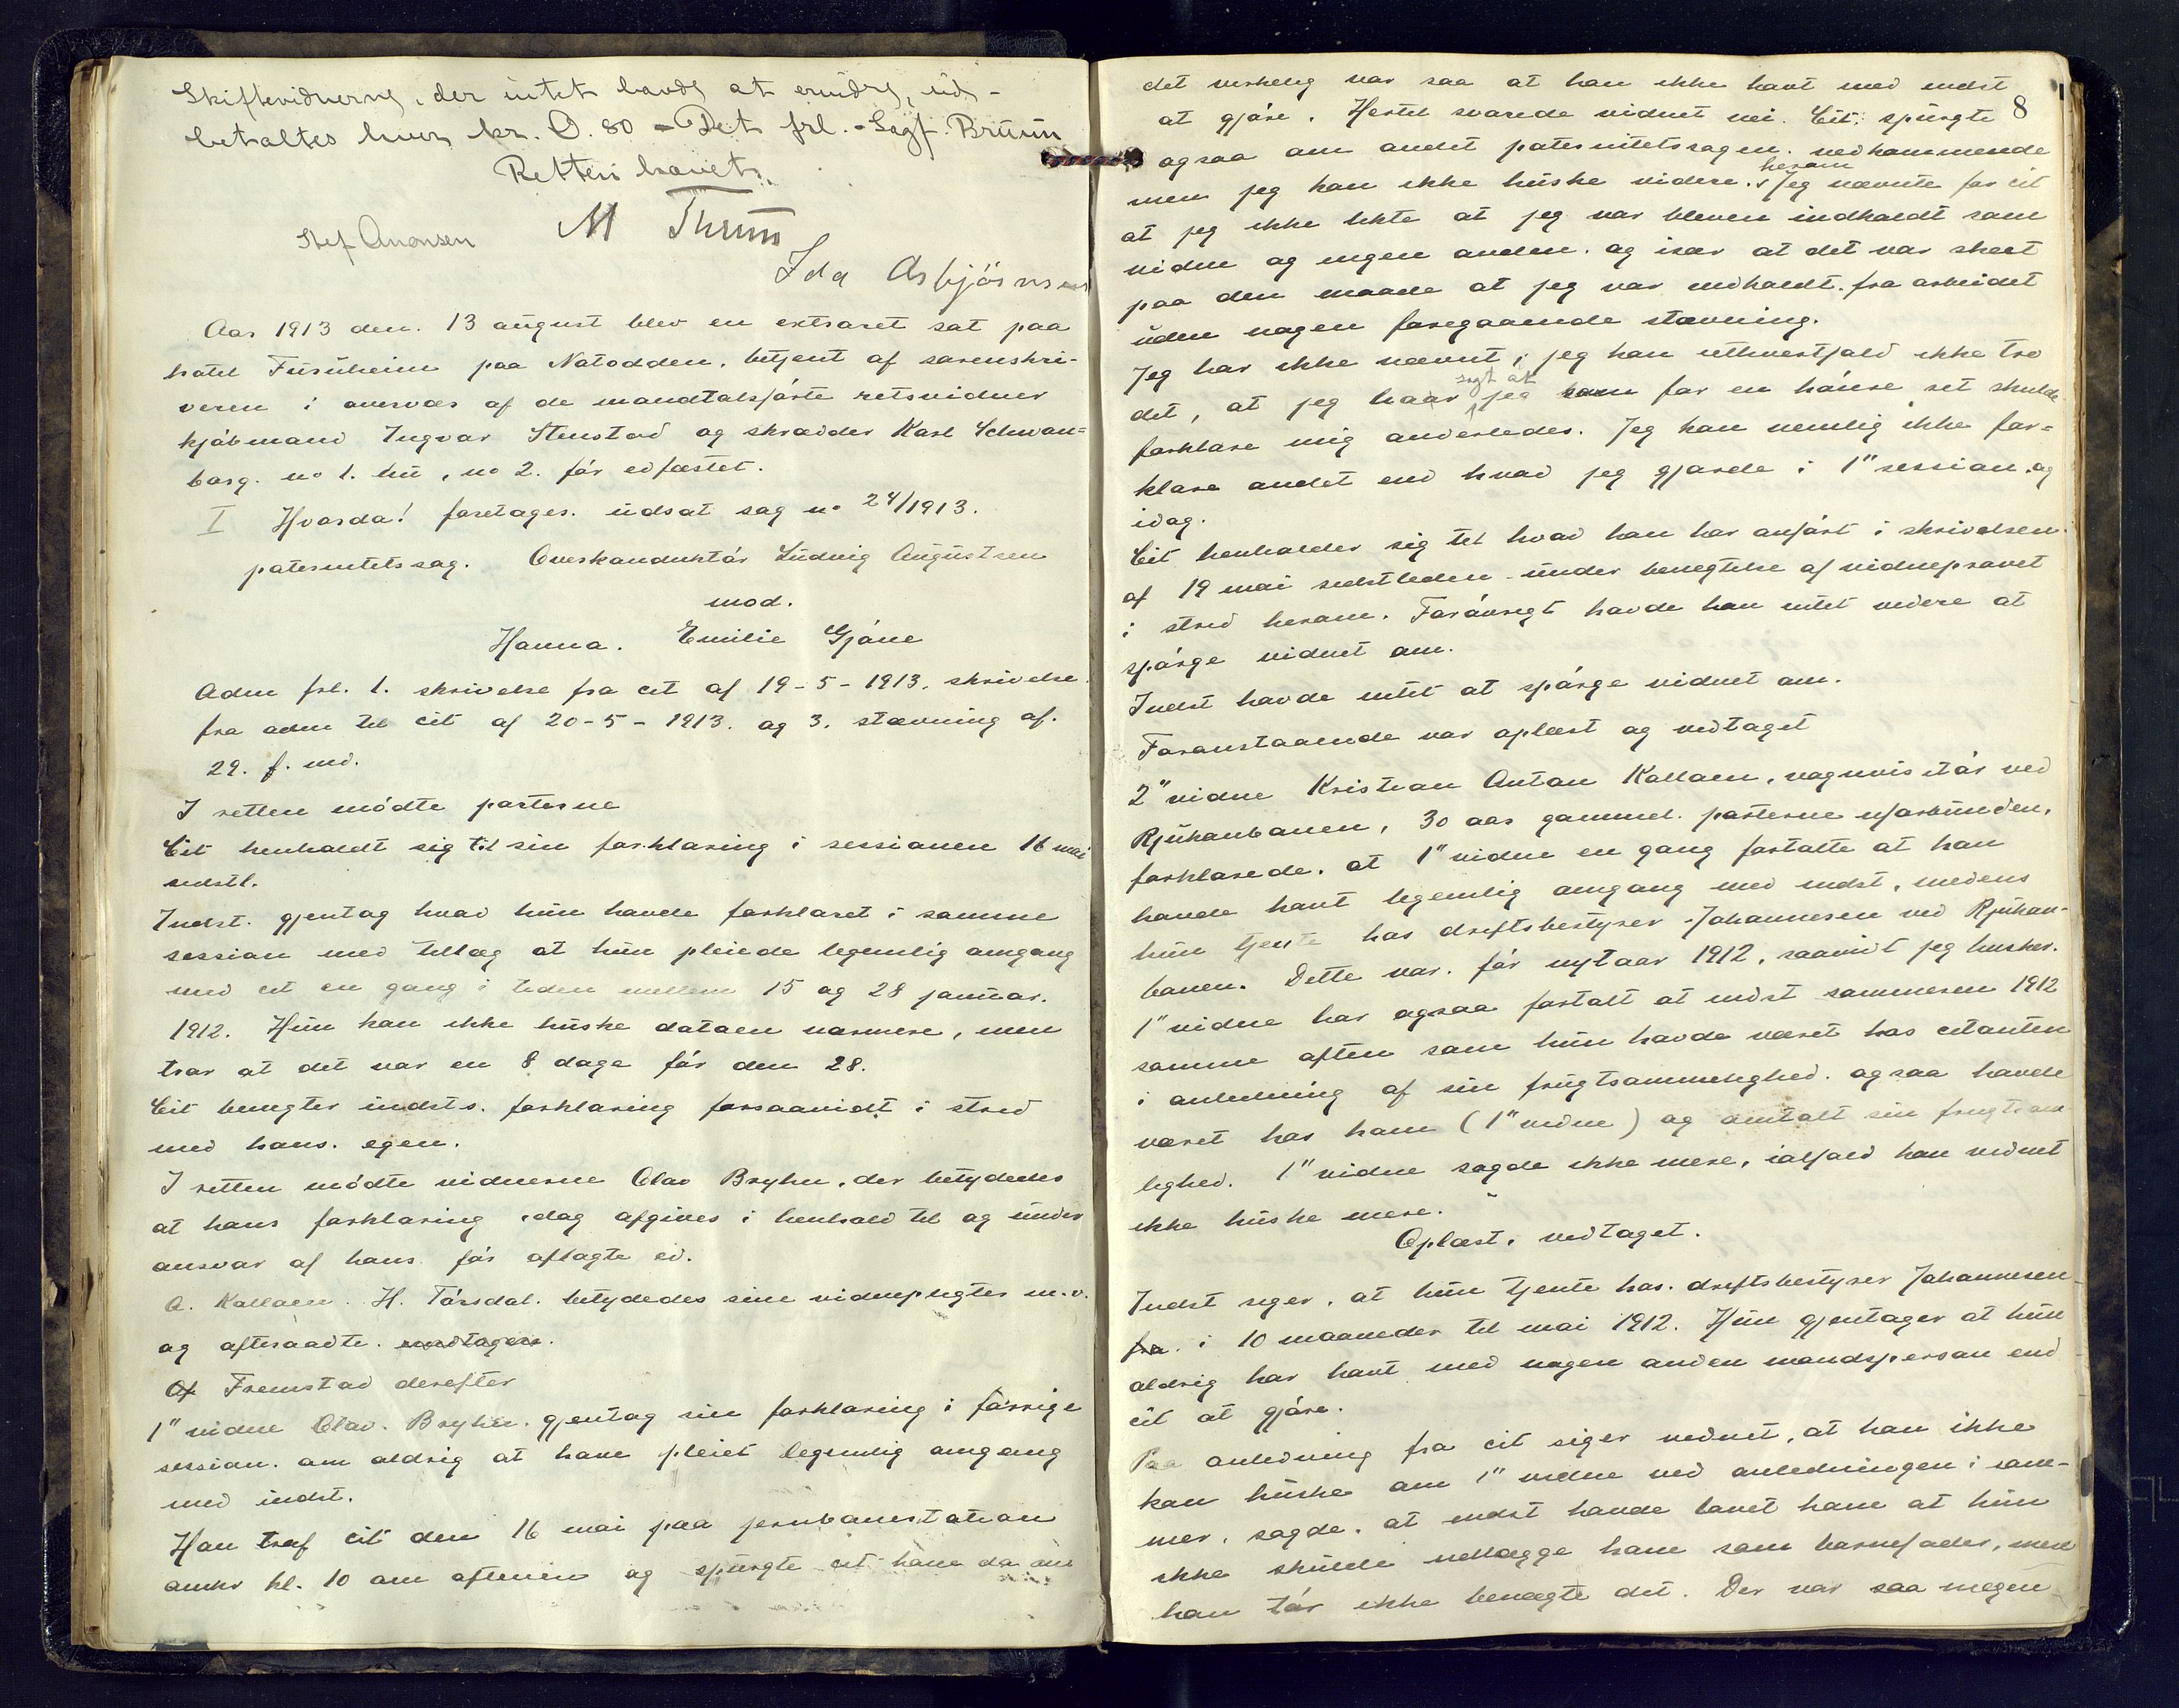 Skiftevidnerne, der intet havde at erindre, ud-
betaltes hver kr. 0.80 - Det frl. - Sagf. Bruun
Retten hævet.
M Thrum
Stef Anonsen
Ida Asbjörnsen
Aar 1913 den. 13 august blev en extraret sat paa
hotel Furuheim paa Notodden, betjent af sorenskri-
veren i overvær af de mandtalsførte retsvidner
kjøbmand Ingvar Stenstad og skrædder Karl Schwan=
borg. no 1. nu, no 2. før edfæstet.
I Hvorda! foretages. udsat sag no 24/1913.
paternitetssag. Overkonduktør Ludvig Augustsen
mod.
Hanna. Emilie Gjøne
Adm frl. 1. skrivelse fra cit af 19-5-1913. skrivelse
fra adm til cit af 20-5-1913. og 3. stævning af.
29. f. md.
I retten mødte parterne
Cit henholdt sig til sin forklaring i sessionen 16 mai
sidstl.
Indst. gjentog hvad hun havde forklaret i samme
session med tillæg at hun pleiede legemlig omgang
med cit en gang i tiden mellem 15 og 28 januar.
1912. Hun kan ikke huske datoen nærmere, men
tror at det var en 8 dage før den 28.
Cit benegter indsts. forklaring forsaavidt i strid
med hans. egen.
I retten mødte vidnerne Olav Bryhn, der betydedes
at hans forklaring idag afgives i henhold til og under
ansvar af hans før aflagte ed.
A. Kallaen. H. Tørsdal. betydedes sine vidnepligter m.v.
og aftraadte.
Fremstod derefter
1" vidne Olav. Bryhn. gjentog sin forklaring i forrige
session. om aldrig at have pleiet legemlig omgang
med indst.
Han traf cit den 16 mai paa jernbanestation
omkr kl. 10 om aftenen og spurgte cit ham da om
8
det virkelig var saa at han ikke havt med indst
at gjøre. Hertil svarede vidnet nei. Cit. spurgte
ogsaa om andet paternitetssagen. vedkommende
men jeg kan ikke huske videre. herom Jeg nævnte for cit
at jeg ikke likte at jeg var bleven indkaldt som
vidne og ingen anden. og især at det var skeet
paa den maade at jeg var indkaldt. fra arbeidet
uden nogen foregaaende stævning.
Jeg har ikke nævnt, jeg kan ialhvertfald ikke tro
det, at jeg har sagt at jeg for en høiere ret skulde
forklare mig anderledes. Jeg kan nemlig ikke for=
klare andet end hvad jeg gjorde i 1" session. og
idag.
Cit henholder sig til hvad han har anført i skrivelsen.
af 19 mai sidstleden - under benegtelse af vidneprovet
i strid herom. Forøvrigt havde han intet videre at
spørge vidnet om.
Indst havde intet at spørge vidnet om.
Foranstaaende var oplæst og vedtaget
2" vidne Kristian Anton Kallaen, vognvisitør ved
Rjukanbanen, 30 aar gammel. parterne uforbunden,
forklarede. at 1" vidne en gang fortalte at han
havde havt legemlig omgang med indst, medens
hun tjente hos driftsbestyrer Johannesen ved Rjukan-
banen. Dette var. før nytaar 1912, saavidt jeg husker.
1" vidne har ogsaa fortalt at indst sommeren 1912
samme aften som hun havde været hos citanten
i anledning af sin frugtsommelighed. ogsaa havde
været hos ham (1" vidne) og omtalt sin frugtsom
lighed. 1" vidne sagde ikke mere, ialfald kan vidnet
ikke huske mere.
Oplæst, vedtaget.
Indst siger, at hun tjente hos. driftsbestyrer Johannesen
fra. i 10 maaneder til mai 1912. Hun gjentager at hun
aldrig har havt med nogen anden mandsperson end
cit at gjøre.
Paa anledning fra cit siger vidnet, at han ikke
kan huske om 1" vidne ved anledningen i som-
mer, sagde. at indst havde lovet ham at hun
ikke skulde udlægge ham som barnefader, men
han tør ikke benægte det. Der var saa megen